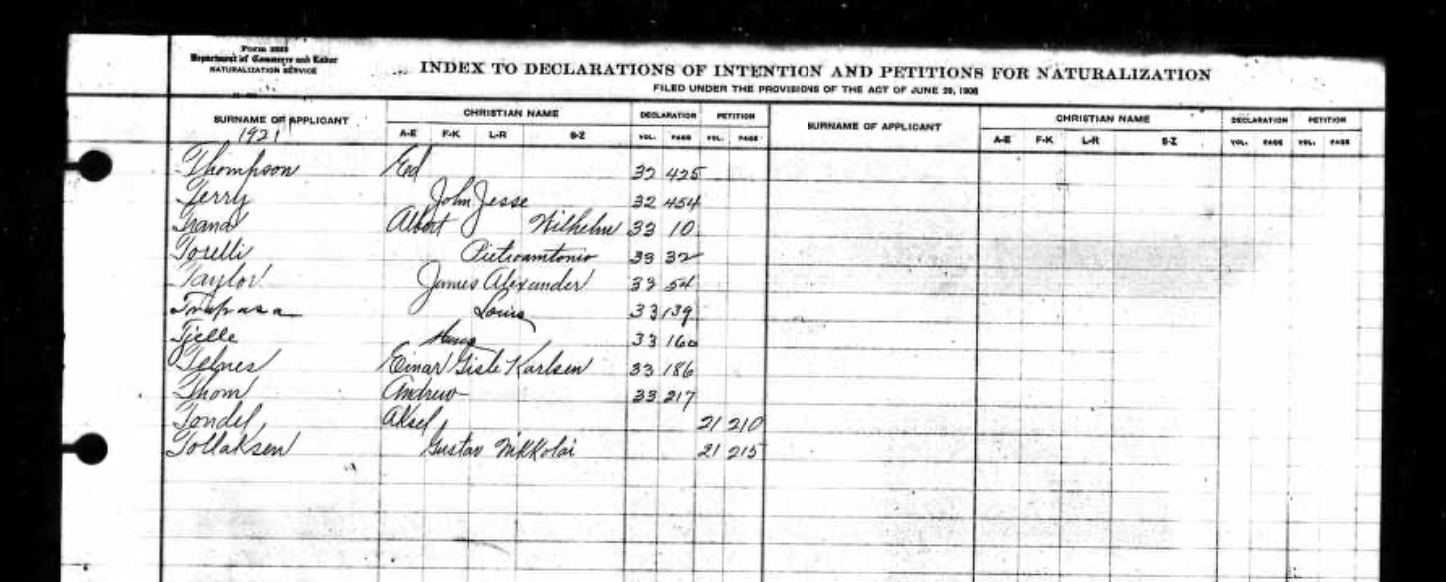 Form 2223
Department of Commerce and Labor
NATURALIZATION SERVICE
INDEX TO DECLARATIONS OF INTENTION AND PETITIONS FOR NATURALIZATION
FILED UNDER THE PROVISIONS OF THE ACT OF JUNE 29, 1906
SURNAME OF APPLICANT CHRISTIAN NAME DECLARATION PETITION SURNAME OF APPLICANT CHRISTIAN NAME DECLARATION PETITION
1921 A-E F-K L-R S-Z VOL. PAGE VOL. PAGE A-E F-K L-R S-Z VOL. PAGE VOL. PAGE
Thompson Ed 32 425
Terry John Jesse 32 454
Trana Albert Wilhelm 33 10
Torelli Pietroantonio 33 32
Taylor James Alexander 33 54
Louis 33 139
Tjelle Hans 33 160
Telnes Einar Gisle Karlsen 33 186
Thom Andrew 33 217
Tondel Aksel 21 210
Tollaksen Gustav Nikkolai 21 215